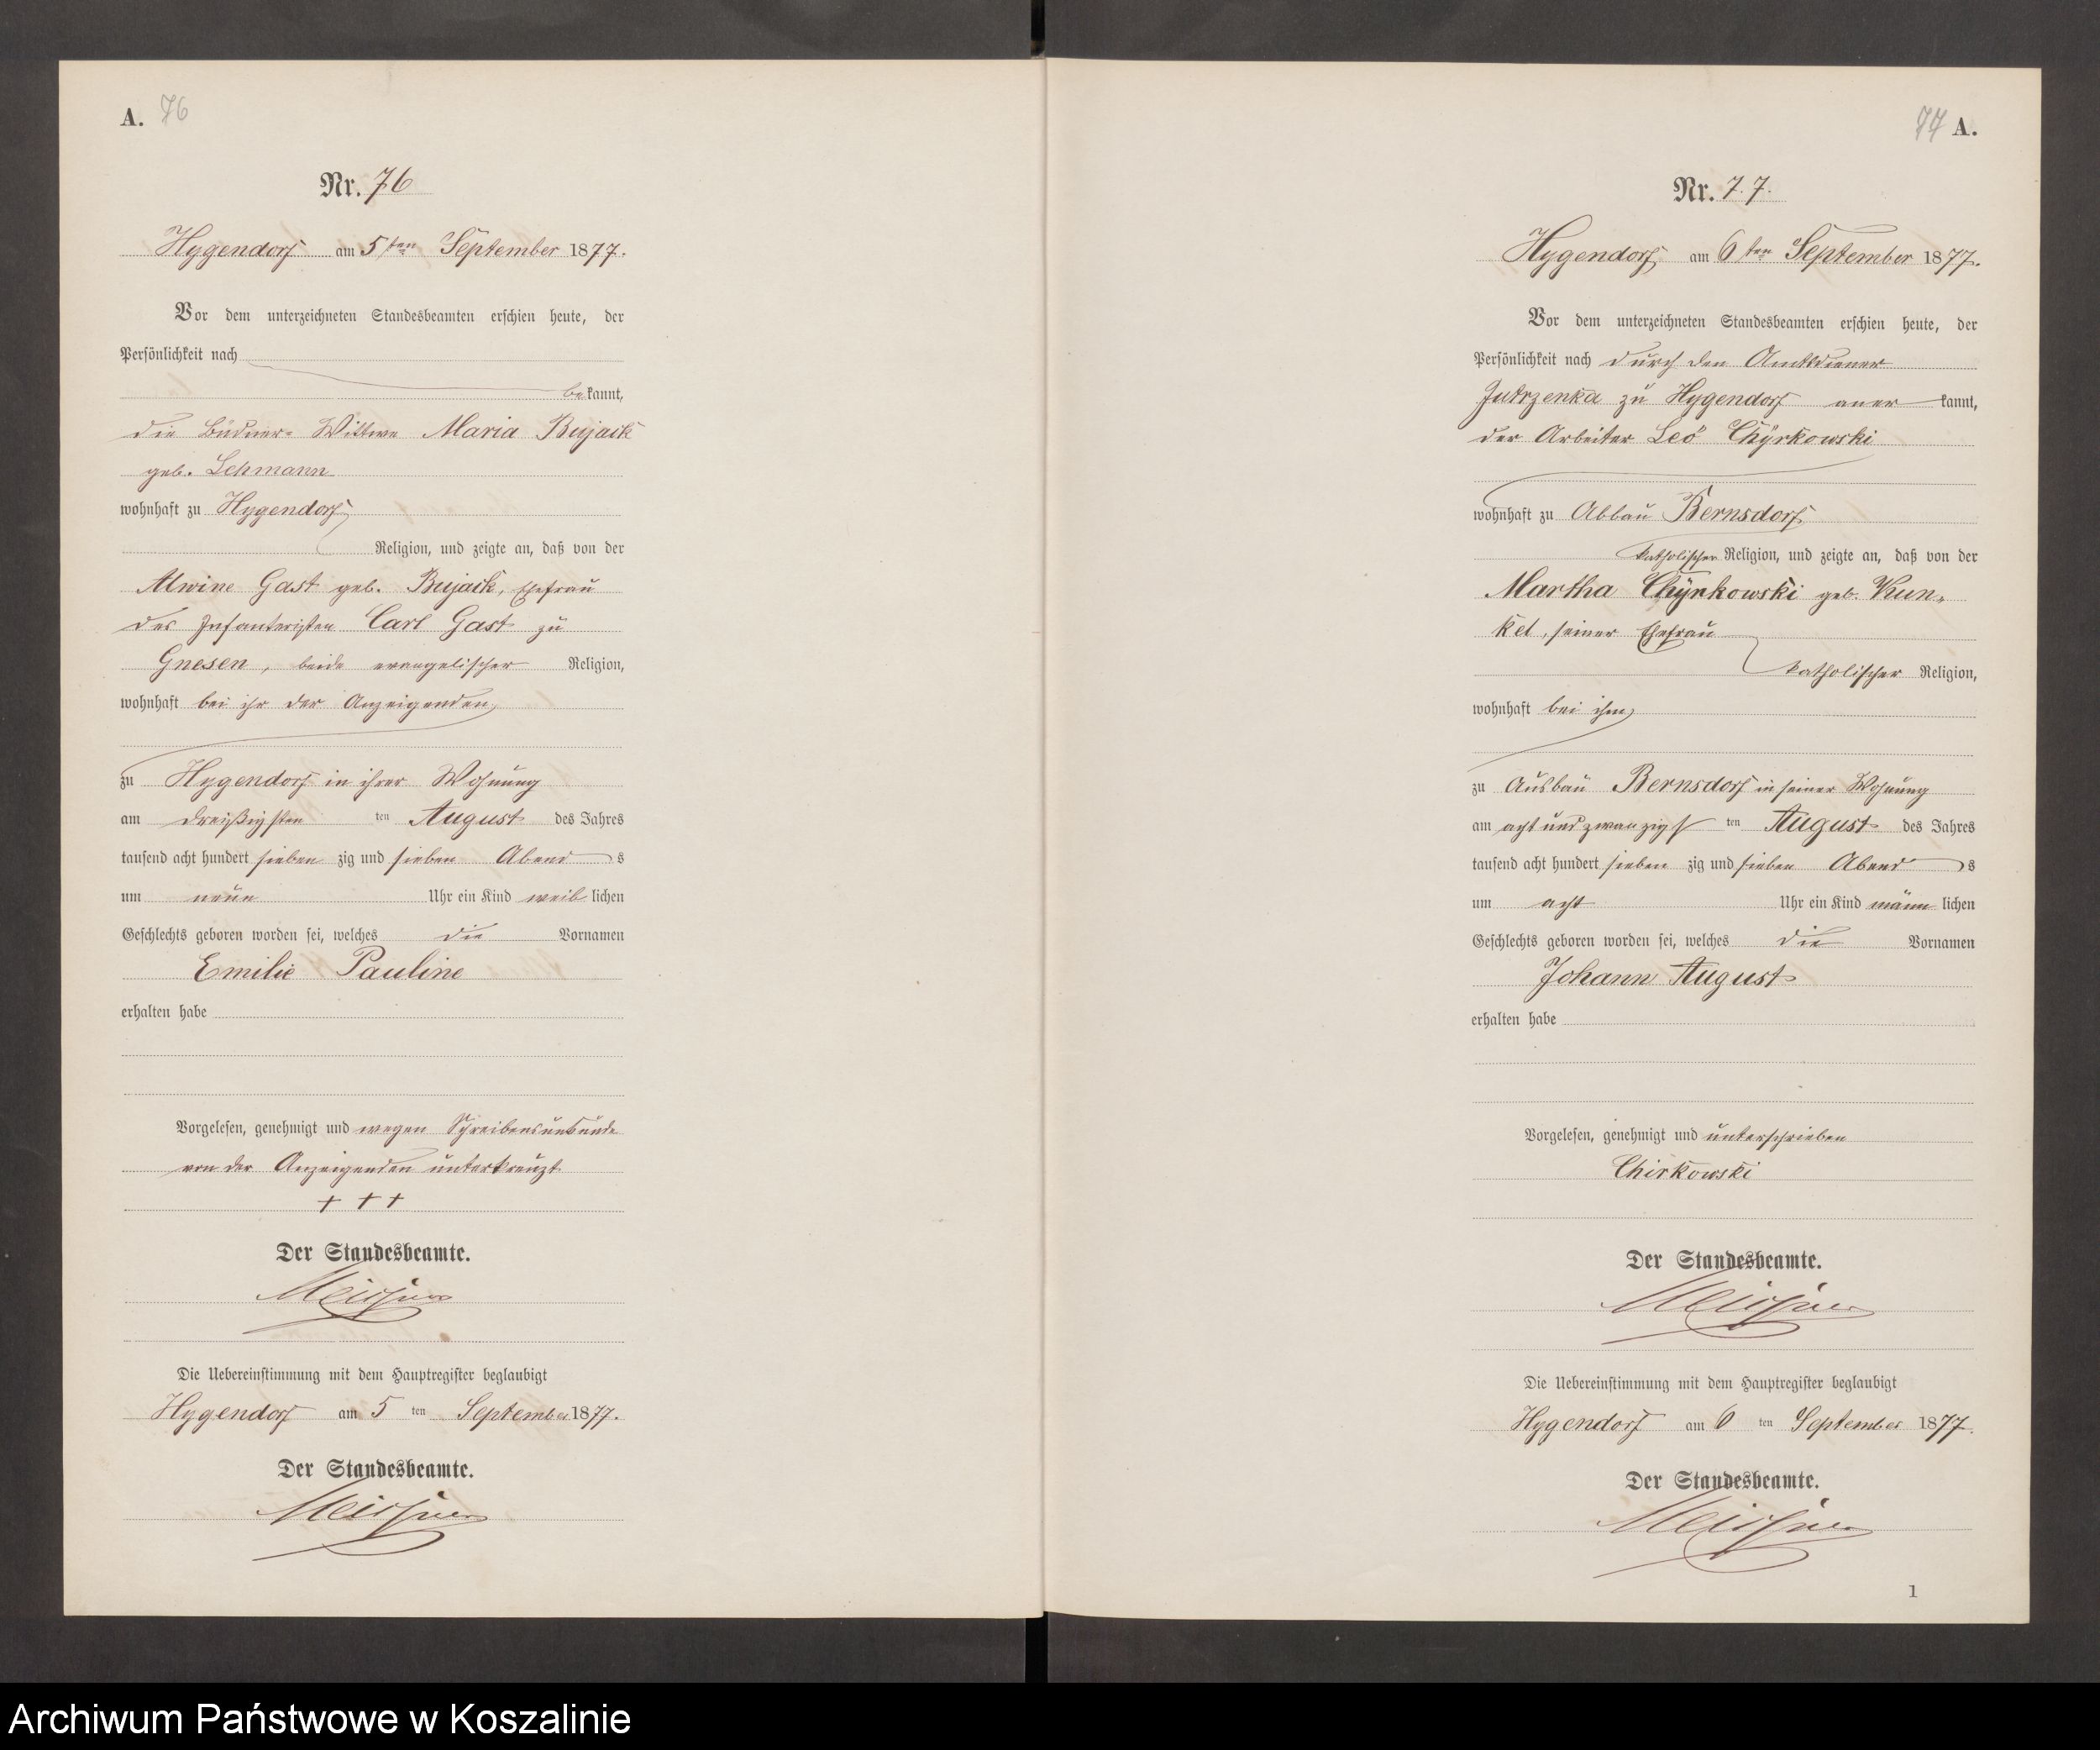 A. 76
Nr. 76
Hygendorf am 5ten September 1877.
Vor dem unterzeichneten Standesbeamten erschien heute, der
Persönlichkeit nach
bekannt,
die Büdner-Wittwe Maria Bujack
geb. Lehmann
wohnhaft zu Hygendorf
Religion, und zeigte an, daß von der
Alwine Gast geb. Bujack, Ehefrau
des Infanteristen Carl Gast zu
Gnesen, beide evangelischer Religion,
wohnhaft bei ihr der Anzeigenden
zu Hygendorf in ihrer Wohnung
am dreißigsten ten August des Jahres
tausend acht hundert sieben zig und sieben Abends
um neun Uhr ein Kind weiblichen
Geschlechts geboren worden sei, welches die Vornamen
Emilie Pauline
erhalten habe
Vorgelesen, genehmigt und wegen Schreibensunkunde
von der Anzeigenden unterkreuzt
+ + +
Der Standesbeamte.
Meissner
Die Uebereinstimmung mit dem Hauptregister beglaubigt
Hygendorf am 5 ten September 1877.
Der Standesbeamte.
Meissner
77 A.
Nr. 77.
Hygendorf, am 6ten September 1877.
Vor dem unterzeichneten Standesbeamten erschien heute, der
Persönlichkeit nach durch den Amtsdiener
Jutrzenka zu Hygendorf anerkannt,
der Arbeiter Leo Chyrkowski
wohnhaft zu Abbau Bernsdorf
katholischer Religion, und zeigte an, daß von der
Martha Chyrkowski geb. Kun-
kel, seiner Ehefrau
katholischer Religion,
wohnhaft bei ihm
zu Ausbau Bernsdorf in seiner Wohnung
am acht und zwanzigs ten August des Jahres
tausend acht hundert sieben zig und sieben Abends
um acht Uhr ein Kind männlichen
Geschlechts geboren worden sei, welches die Vornamen
Johann August
erhalten habe
Vorgelesen, genehmigt und unterschrieben
Chirkowski
Der Standesbeamte.
Meissner
Die Uebereinstimmung mit dem Hauptregister beglaubigt
Hygendorf am 6 ten September 1877.
Der Standesbeamte.
Meissner
1
Archiwum Państwowe w Koszalinie